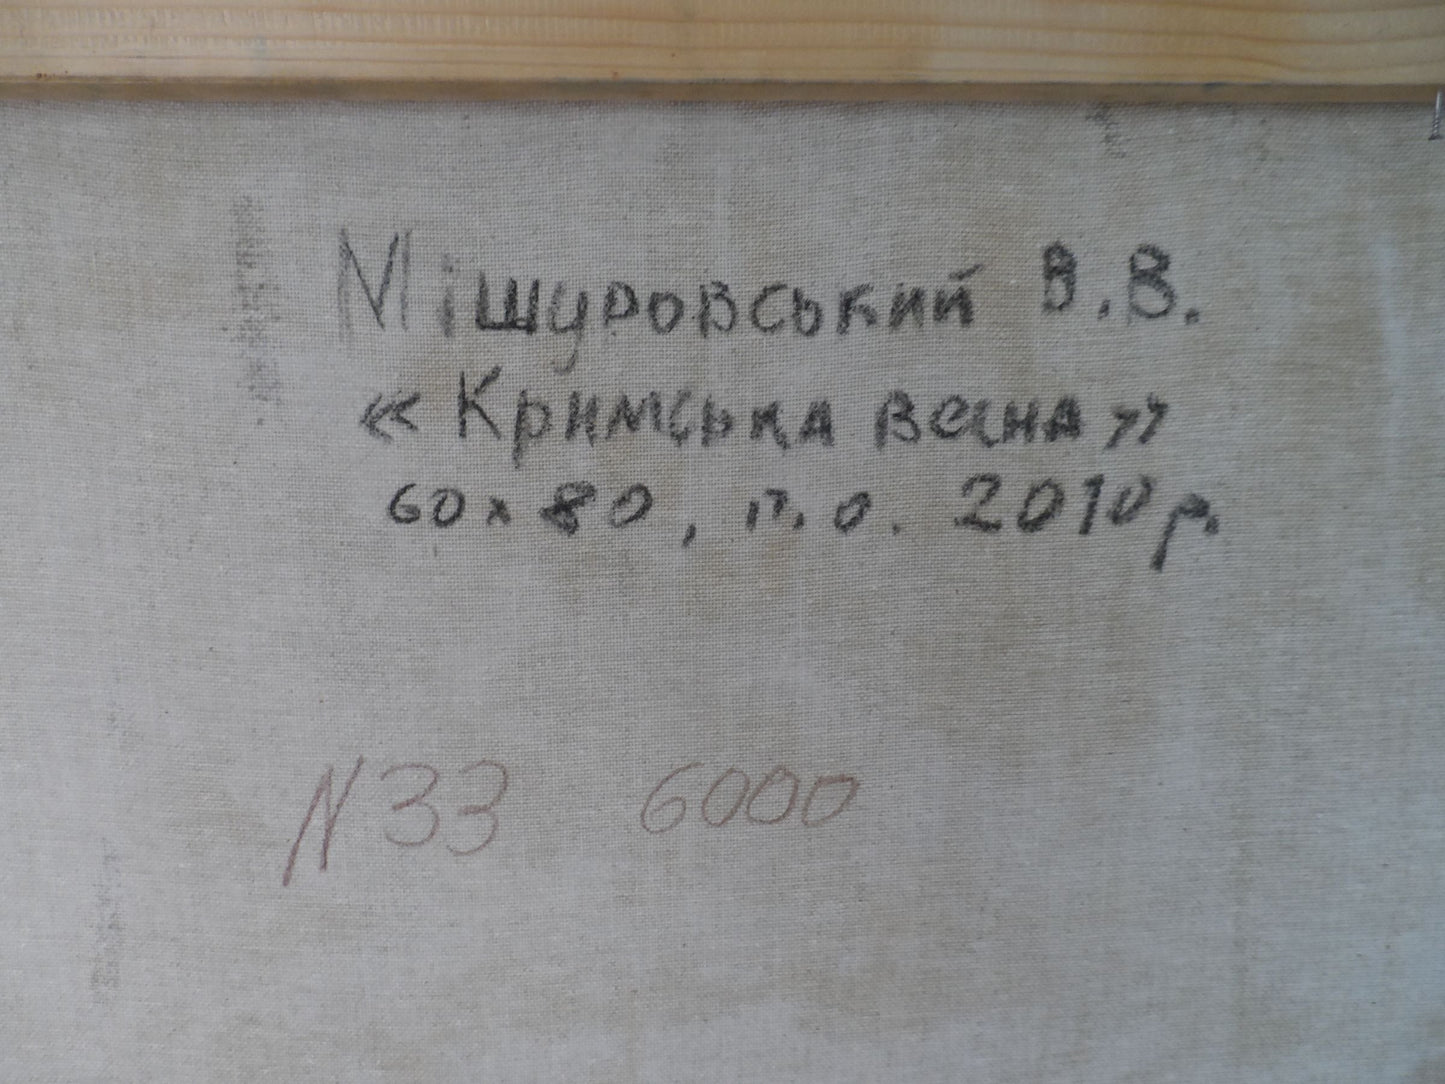 Мішуровський В.В.
« Кримська весна »
60х80, п.о. 2010р.
N33 6000